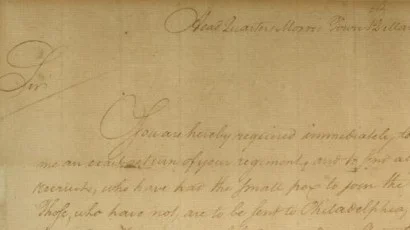 Head Quarters Morris Town
Sir,
You are hereby required immediately to
me an exact return of your regiment, and to send
recruits, who have had the small pox to join the
Those, who have not, are to be sent to Philadelphia,